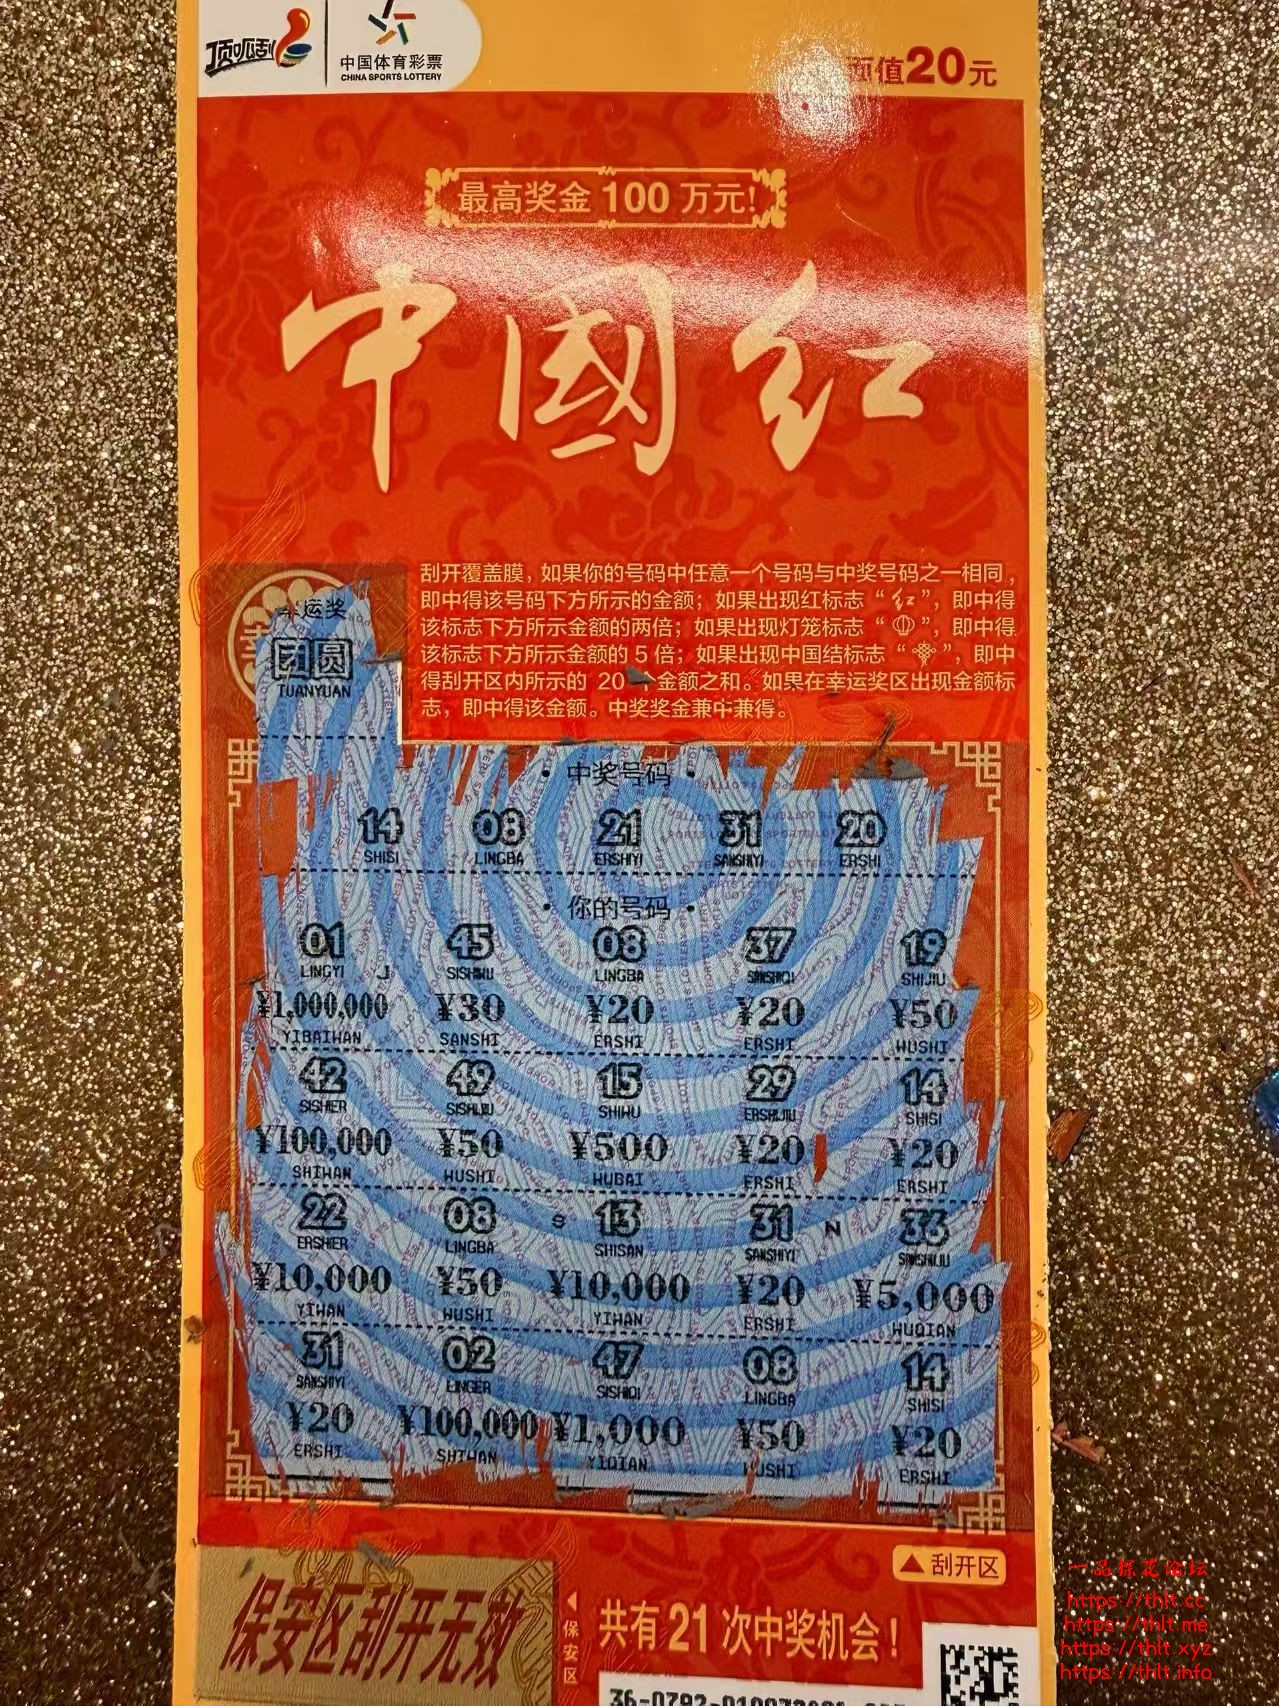 顶呱刮
中国体育彩票
CHINA SPORTS LOTTERY
面值20元
最高奖金 100 万元!
中國红
刮开覆盖膜，如果你的号码中任意一个号码与中奖号码之一相同，
即中得该号码下方所示的金额；如果出现红标志“红”，即中得
该标志下方所示金额的两倍；如果出现灯笼标志“ ”，即中得
该标志下方所示金额的 5 倍；如果出现中国结标志“ ”，即中
得刮开区内所示的 20 个金额之和。如果在幸运奖区出现金额标
志，即中得该金额。中奖奖金兼中兼得。
幸运奖
团圆
TUANYUAN
·中奖号码·
14 08 21 31 20
SHISI LINGBA ERSHIYI SANSHIYI ERSHI
·你的号码·
01 45 08 37 19
LINGYI J SISHIWU LINGBA SANSHIQI SHIJIU
¥1,000,000 ¥30 ¥20 ¥20 ¥50
YIBAIWAN SANSHI ERSHI ERSHI WUSHI
42 49 15 29 14
SISHIER SISHIJIU SHIWU ERSHIJIU SHISI
¥100,000 ¥50 ¥500 ¥20 ¥20
SHIWAN WUSHI WUBAI ERSHI ERSHI
22 08 S 13 31 N 33
ERSHIER LINGBA SHISAN SANSHIYI
¥10,000 ¥50 ¥10,000 ¥20 ¥5,000
YIWAN WUSHI YIWAN ERSHI WUQIAN
31 02 47 08 14
SANSHIYI LINGER SISHIQI LINGBA SHISI
¥20 ¥100,000 ¥1,000 ¥50 ¥20
ERSHI SHIWAN YIQIAN WUSHI ERSHI
▲刮开区
保安区刮开无效
◀保安区
共有21次中奖机会!
一品探花论坛
https://thlt.cc
https://thlt.me
https://thlt.xyz
https://thlt.info